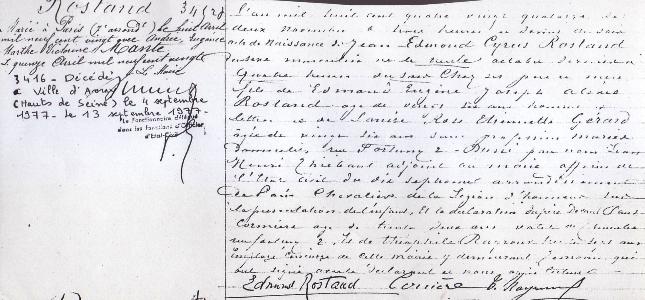 Rostand
Marié à Paris (7e arrondt) le huit Avril
mil neuf cent vingt avec Andrée, Suzanne
Marthe Mante
Le quinze Avril mil neuf cent vingt
Le Maire
3416 - Décédé
à Ville d'Avray
(Hauts de Seine) le 4 septembre
1977 - le 13 septembre 1977-
Le Fonctionnaire délégué
dans les fonctions d'Officier
d'Etat-Civil
L'an mil huit cent quatre vingt quatorze le
deux novembre à trois heures du
acte de Naissance de Jean Edmond Cyrus Rostand
du sexe masculin né le trente octobre dernier à
quatre heures du soir chez ses père et mère
fils de Edmond Eugène Joseph Alexis
Rostand âgé de vingt six ans homme de
lettres et de Louise Rose Etiennette Gérard
âgée de vingt six ans sans profession mariés
Domiciliés, rue Fortuny 2 - Dressé par nous Jean
Henri Thiébaut adjoint au maire officier de
l'état civil du dix septième arrondissement
de Paris Chevalier de la Légion d'honneur sur
la présentation de l'enfant, et la déclaration du père Devant
âgé de trente deux ans valet de chambre
rue Fortuny 2, et de Théophile
employé de cette mairie y demeurant témoins qui
ont signé avec le déclarant et nous après lecture
Edmond Rostand